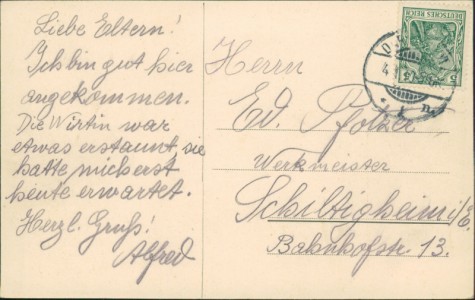 Liebe Eltern!
Ich bin gut hier
angekommen.
Die Wirtin war
etwas erstaunt sie
hatte mich erst
heute erwartet.
Herzl. Gruß!
Alfred
Herrn
Ed. Pfolzer
Werkmeister
Schiltigheim i/E.
Bahnhofstr. 13.
DEUTSCHES REICH
5 5